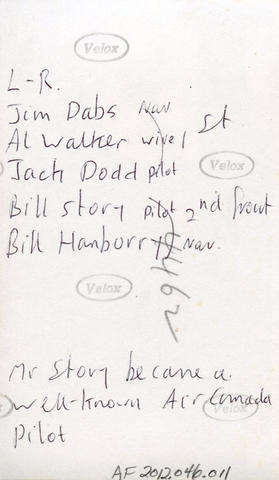 Velox
L-R.
Jim Dabs Nav
Al Walker wire/ st
Jack Dodd pilot
Velox
Bill Story pilot 2nd front
Bill Hanburry Nav.
Velox
Mr Story became a
well-known Air Canada
Velox
Pilot
AF 2012.046.011